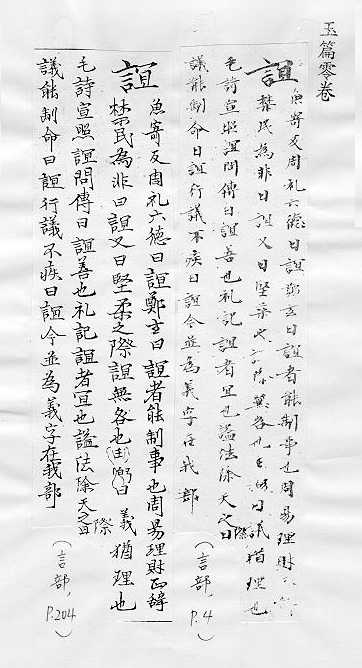 玉篇零卷
誼
魚寄反周礼六德曰誼鄭玄曰誼者能制事也周易理財
禁民為非曰誼又曰堅柔之際誼無咎也王弼曰誼猶理也
毛詩宣照誼問傳曰誼善也礼記誼者宜也謚法除天之際曰
議能制命曰誼行議不疾曰誼今並為義字在我部
(言部, P.4)
誼
魚寄反周礼六德曰誼鄭玄曰誼者能制事也周易理財正辞
禁民為非曰誼又曰堅柔之際誼無咎也(王)弼曰義猶理也
毛詩宣照誼問傳曰誼善也礼記誼者宜也謚法除天之際曰
議能制命曰誼行議不疾曰誼今並為義字在我部
(言部, P.204)